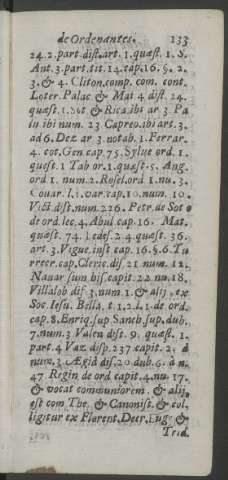 de Ordenantes. 133
24. 2. part. dist. art. 1. quæst. 1. S.
Ant. 3. part. tit. 14. cap. 16. §. 2.
3. & 4. Cliton. comp. com. cont.
Loter. Palac. & Mat 4 dist. 24.
quæst. 1. Sot & Rica. ibi ar 3. Pa
lu ibi num. 23 Capreo. ibi art. 3.
ad 6. Dez ar 3. notab. 1. Ferrar.
4. cot. Gen cap. 75. Sylue ord. 1.
quæst 1 Tab or. 1. quæst. 5. Ang.
ord 1. num 2. Rosel. ord 1. nu. 3.
Couar. l. 1. var. cap. 10. num. 10.
Vict dist. num. 226. Petr. de Soto
de ord. lec. 4. Abul cap. 16. Mat.
quæst. 74. Ledes. 2. 4. quæst. 36.
art. 3. Vigue. inst cap. 16. §. 6. Tu
rrecr. cap. Cleric. dis. 21 num. 12.
Nauar sum his. capit. 22 nu. 18.
Villalob dif. 3. num. 1. & alij, ex
Soc. Iesu. Bella. t. 1. 2. l. 1. de ord.
cap. 8. Enriq. sup. Sanch. sup. dub.
7. num. 3 Valen dist. 9. quæst. 1.
part. 4 Vaz disp. 237. capit. 2. à
num. 3. Ægid dis. 20. dub. 6. à n.
47. Regin de ord capit. 4. nu. 17.
& vocat communiorem. & alij,
est com The. & Canonist. & col-
ligitur ex Florent. Decr. Eug. &
Trid.